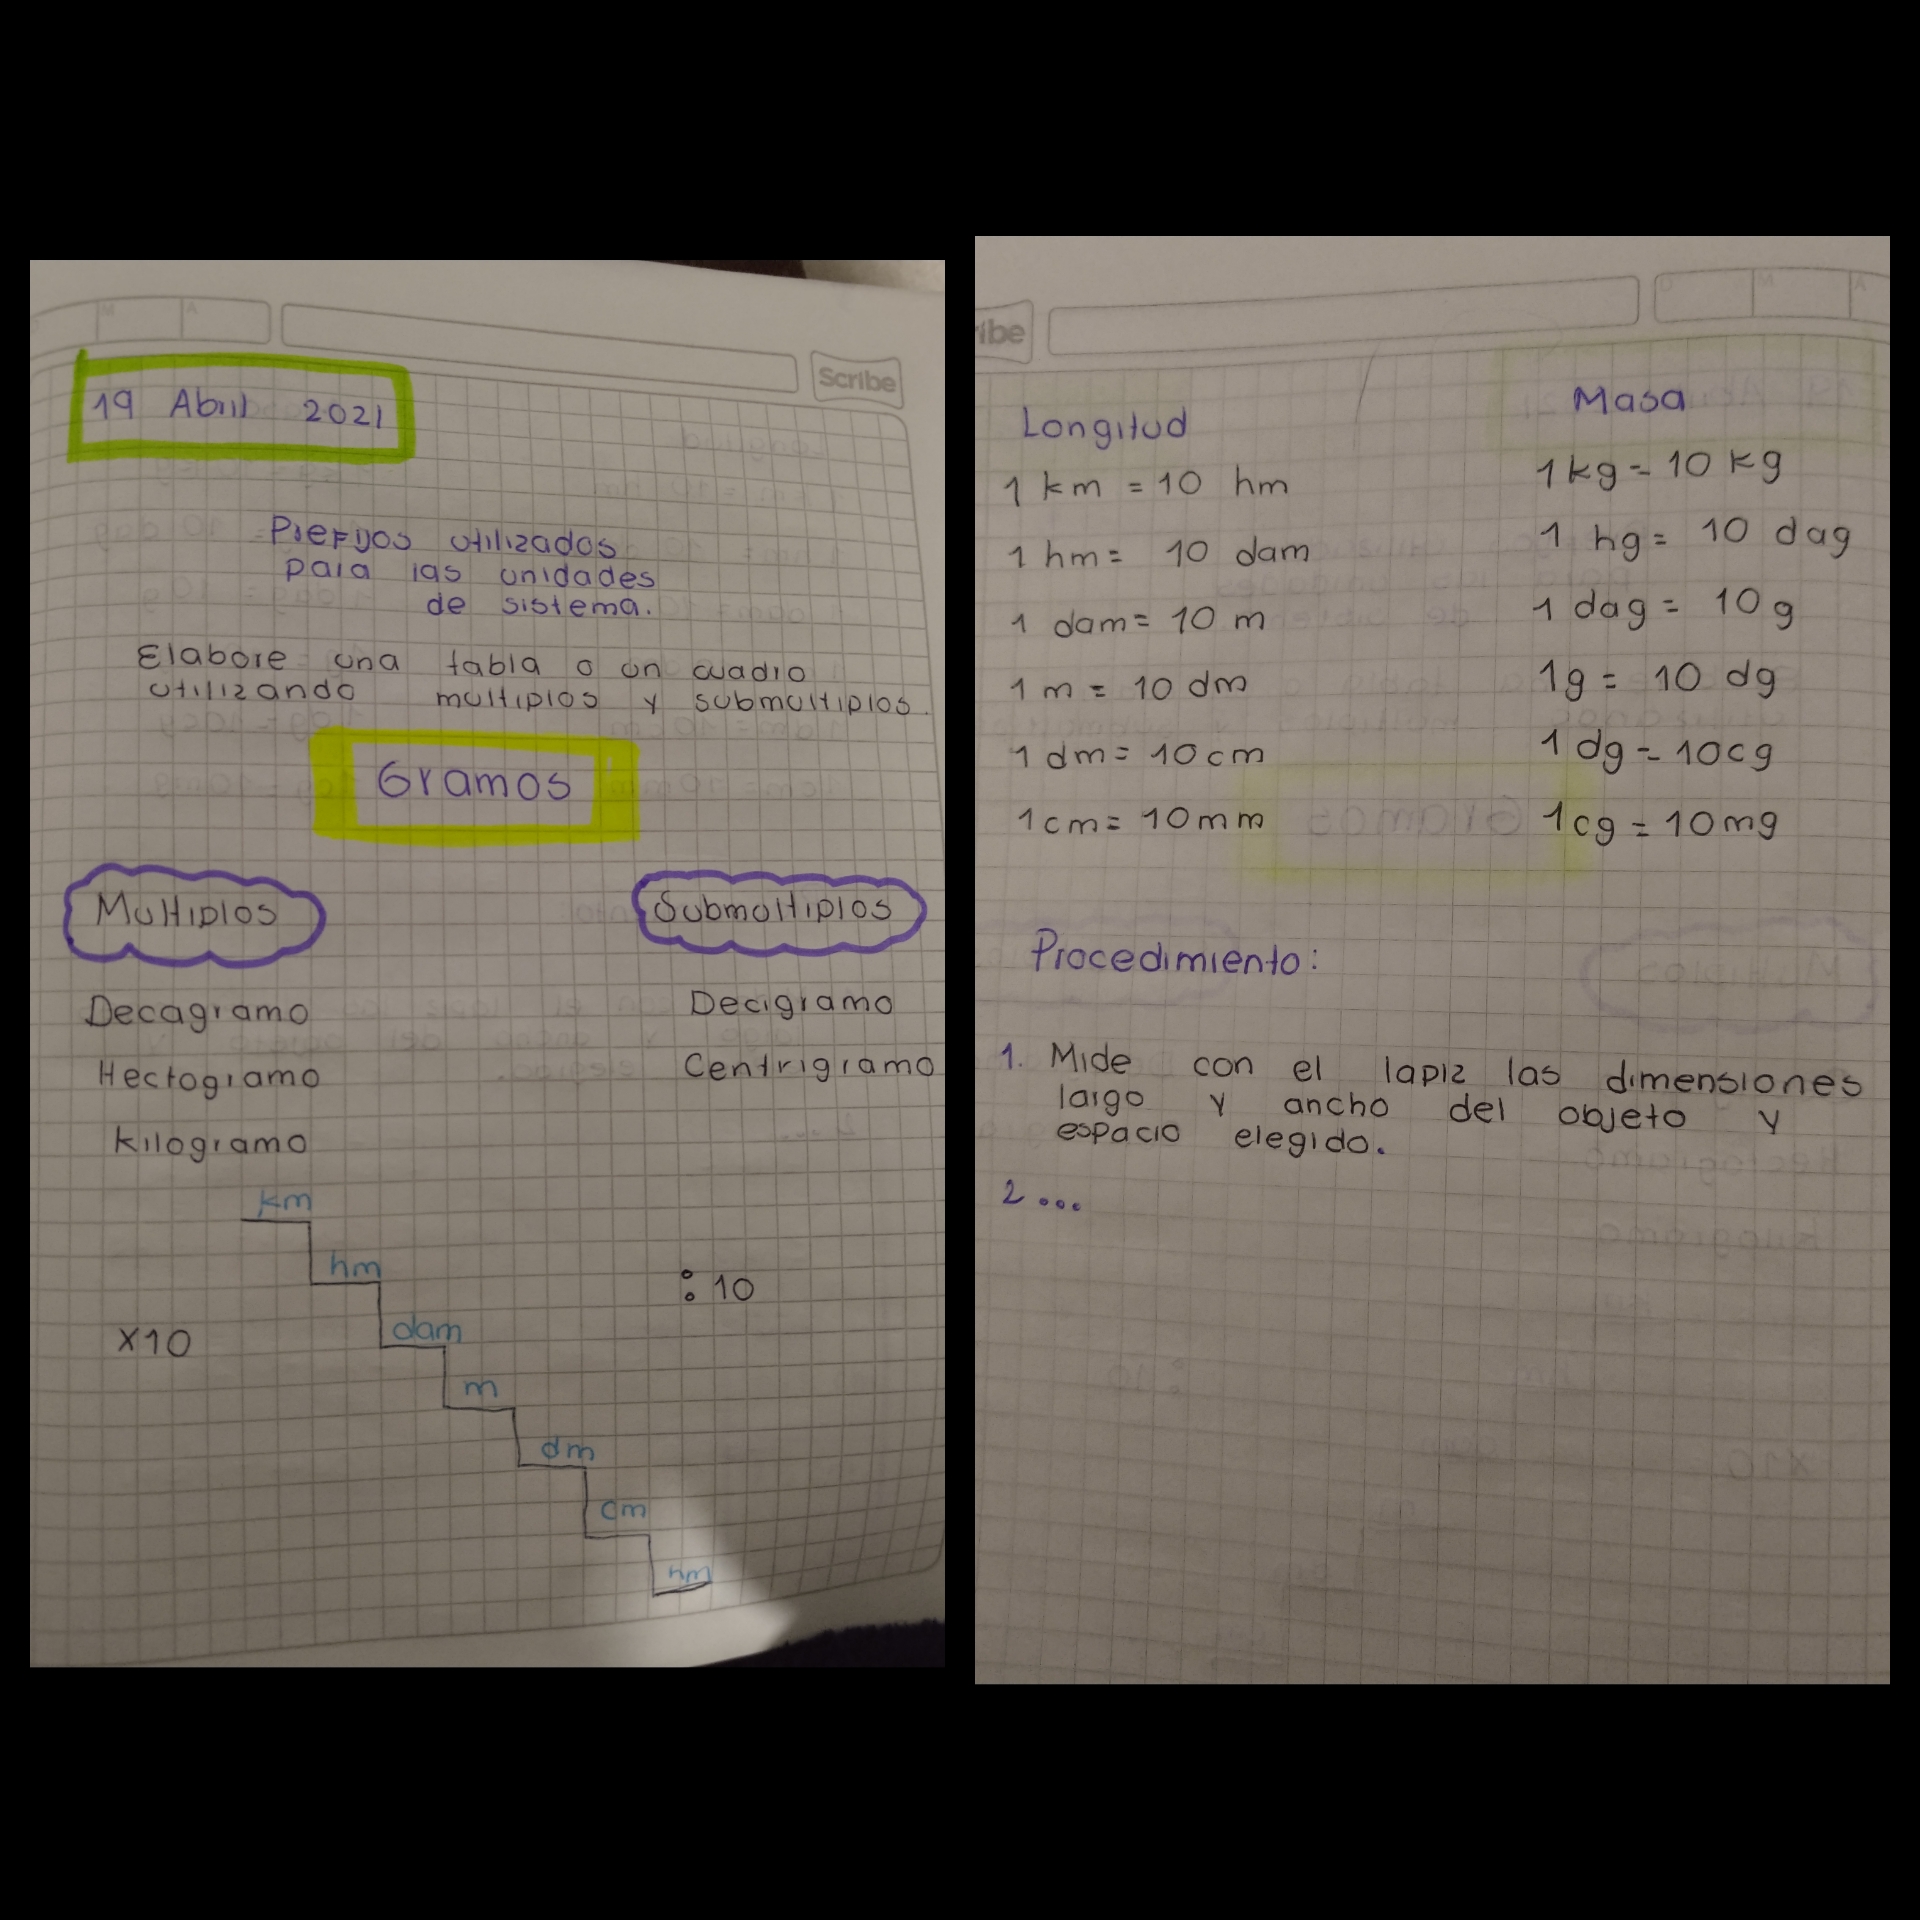 Scribe
19 Abril 2021
Prefijos utilizados
para las unidades
de sistema.
Elabore una tabla o un cuadro
utilizando multiplos y submultiplos.
Gramos
Multiplos
Submultiplos
Decagramo
Decigramo
Hectogramo
Centrigramo
Kilogramo
km
hm
: 10
dam
X10
m
dm
cm
hm
ribe
Longitud
Masa
1 km = 10 hm
1kg = 10 kg
1 hm = 10 dam
1 hg = 10 dag
1 dam = 10 m
1 dag = 10 g
1 m = 10 dm
1g = 10 dg
1 dm = 10 cm
1 dg = 10cg
1 cm = 10 mm
1cg = 10mg
Procedimiento:
1. Mide con el lapiz las dimensiones
largo y ancho del objeto y
espacio elegido.
2 ...